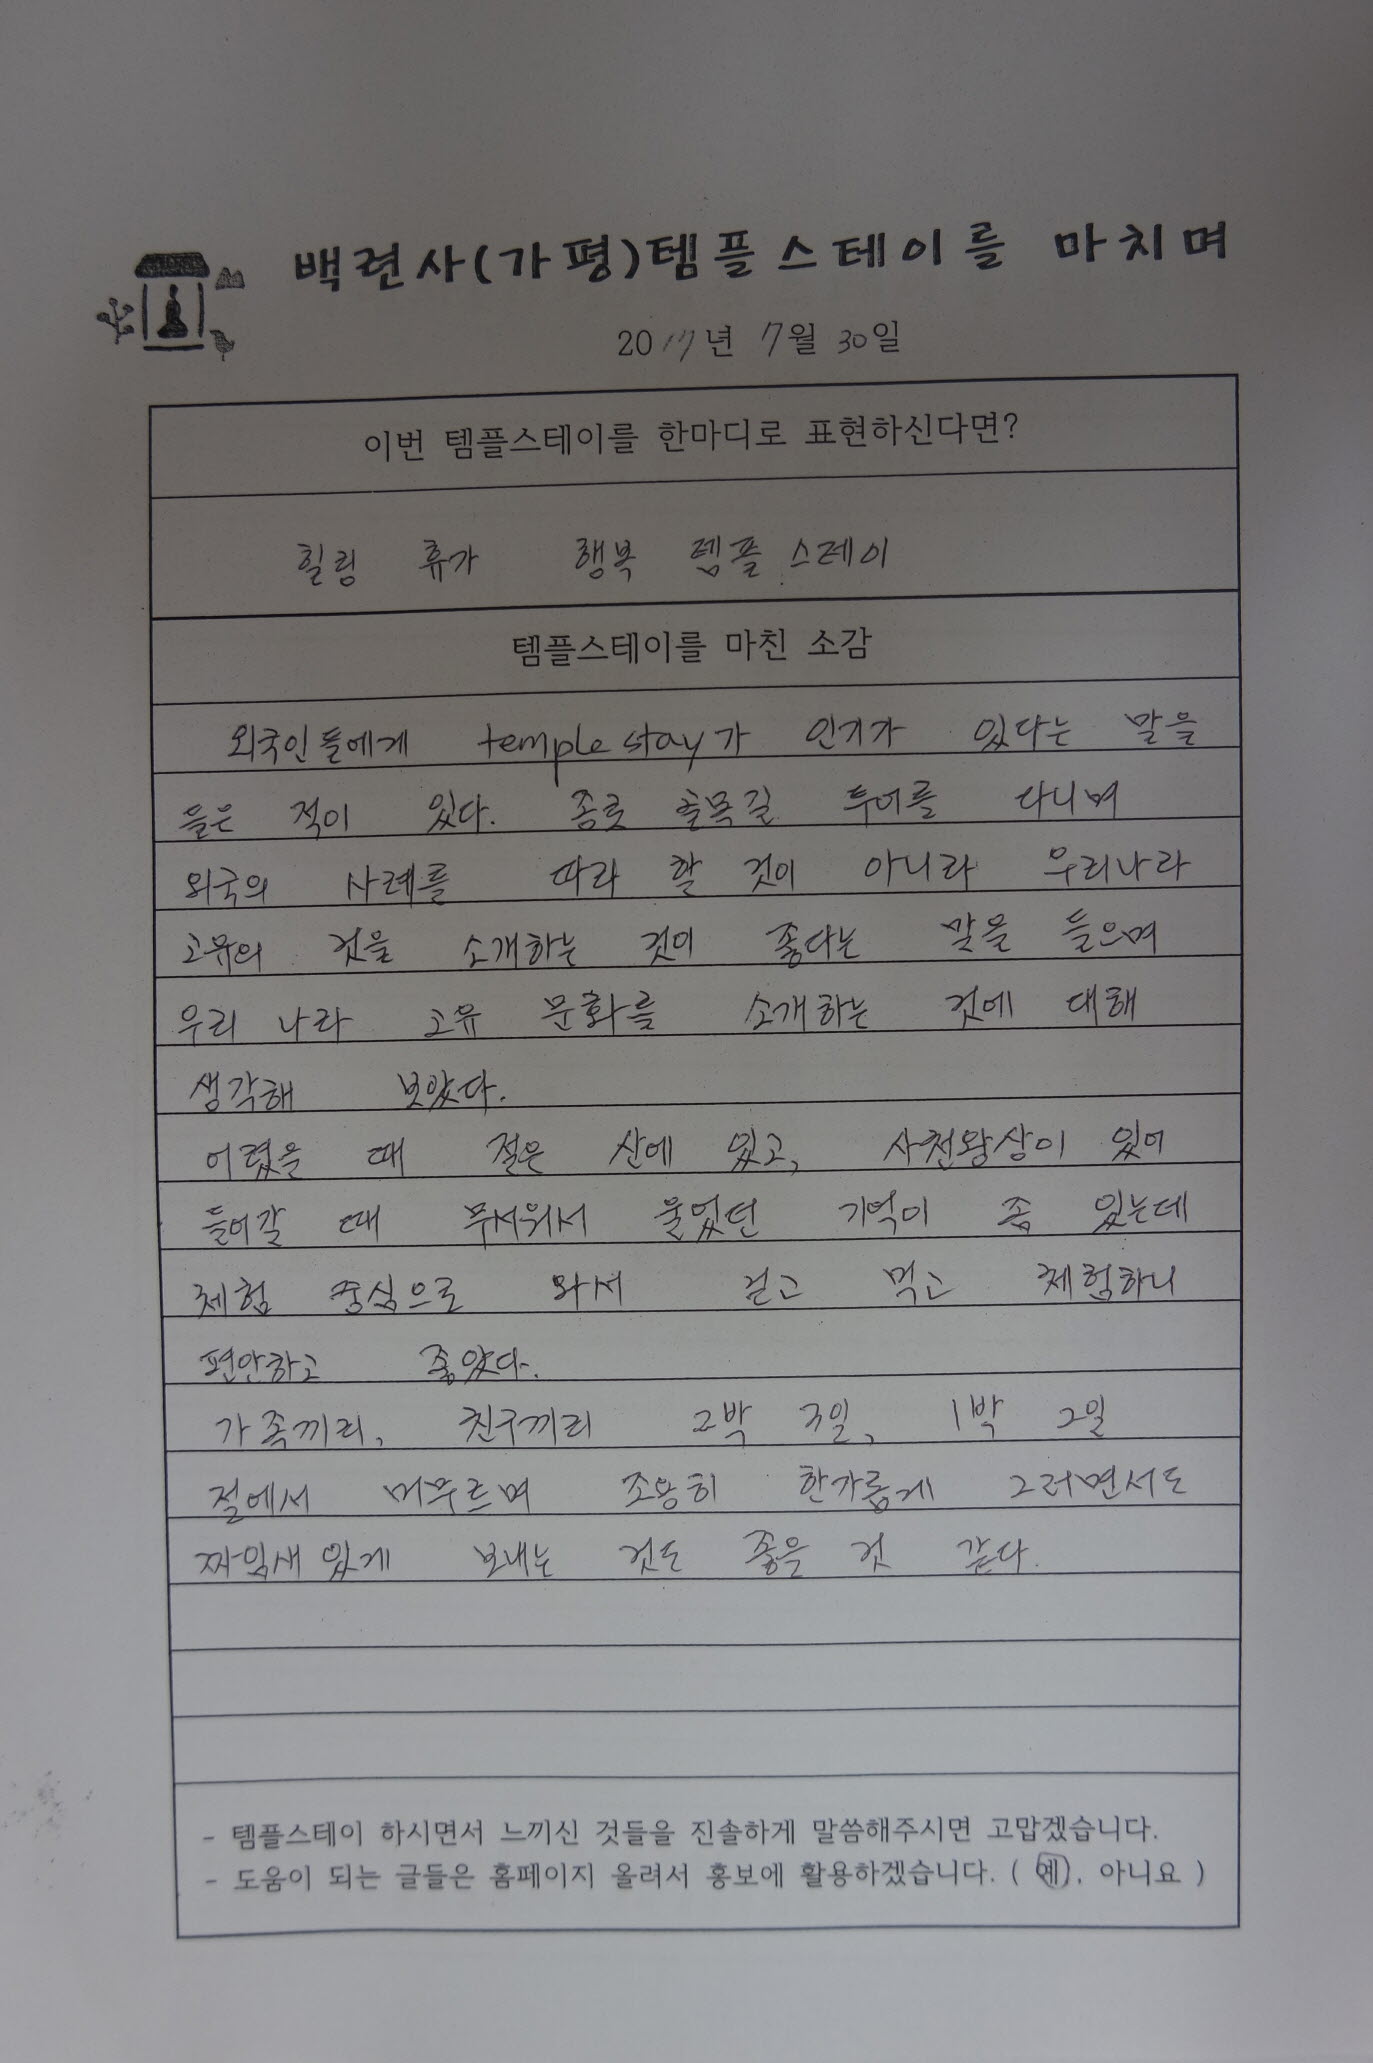 백련사(가평)템플스테이를 마치며
2017년 7월 30일
이번 템플스테이를 한마디로 표현하신다면?
힐링 휴가 행복 템플 스테이
템플스테이를 마친 소감
외국인들에게 temple stay가 인기가 있다는 말을
들은 적이 있다. 종로 골목길 투어를 다니며
외국의 사례를 따라 할 것이 아니라 우리나라
고유의 것을 소개하는 것이 좋다는 말을 들으며
우리 나라 고유 문화를 소개하는 것에 대해
생각해 보았다.
어렸을 때 절은 산에 있고, 사천왕상이 있어
들어갈 때 무서워서 울었던 기억이 좀 있는데
체험 중심으로 와서 걷고 먹고 체험하니
편안하고 좋았다.
가족끼리, 친구끼리 2박 3일, 1박 2일
절에서 머무르며 조용히 한가롭게 그러면서도
짜임새 있게 보내는 것도 좋을 것 같다.
- 템플스테이 하시면서 느끼신 것들을 진솔하게 말씀해주시면 고맙겠습니다.
- 도움이 되는 글들은 홈페이지 올려서 홍보에 활용하겠습니다. ( 예), 아니요 )